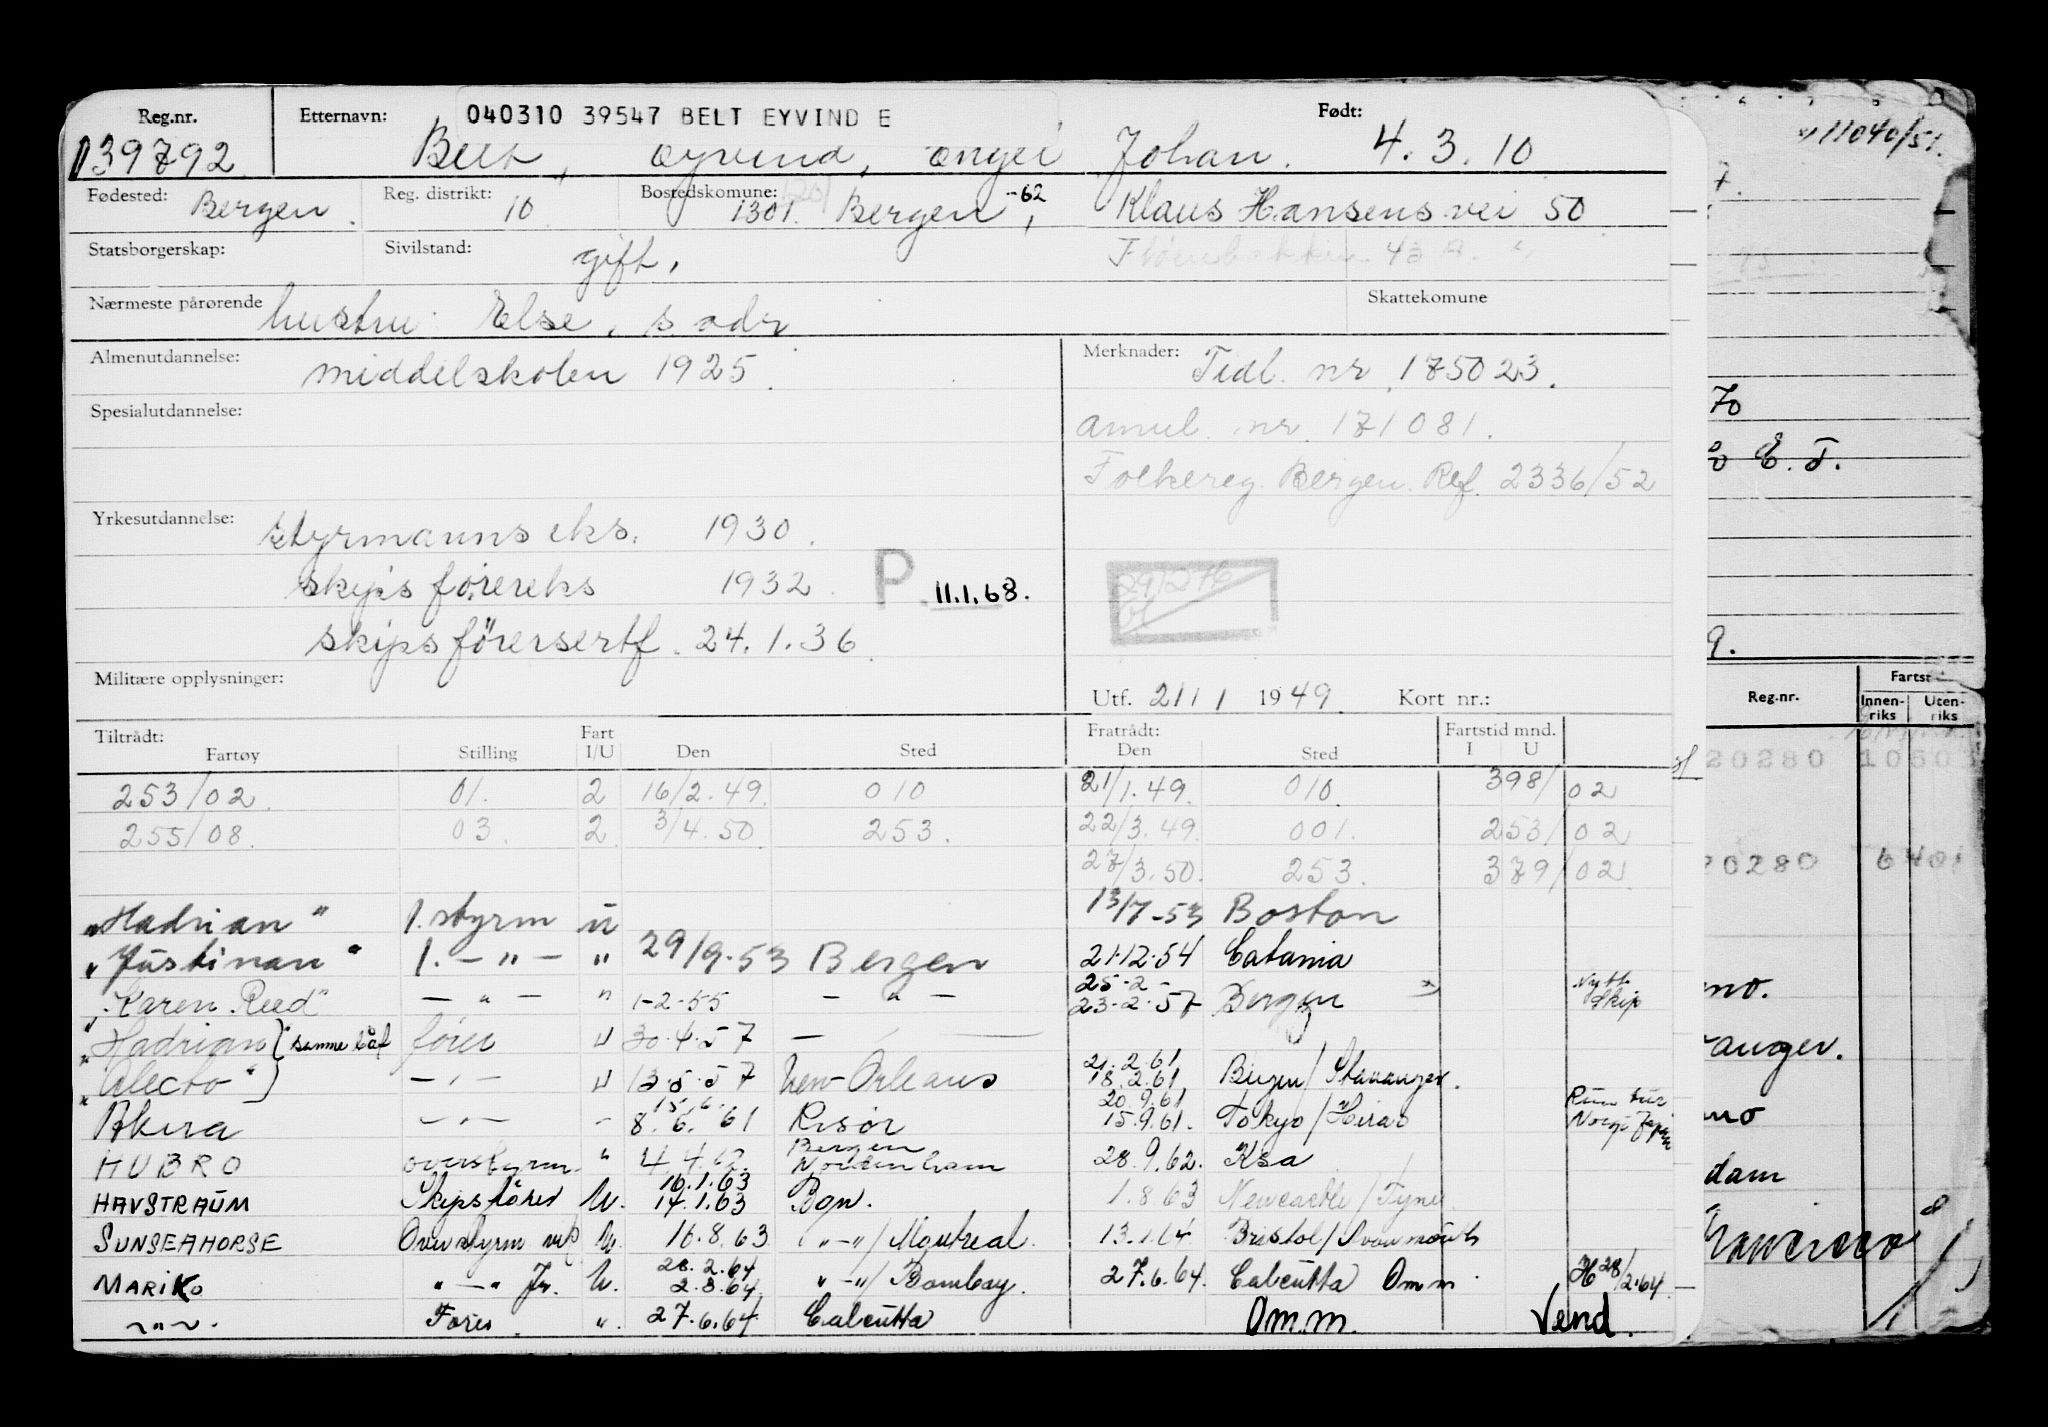 Reg.nr. Etternavn: 040310 39547 BELT EYVIND E Født:
139792 Belt, Øyvind, Engel Johan. 4.3.10
Fødested: Bergen. Reg. distrikt: 10 Bostedskomune: 1301. Bergen -62, Klaus Hansens vei 50
Statsborgerskap: Sivilstand: gift, Fløenbakken 43
Nærmeste pårørende hustru: Else, s. adr Skattekomune
Almenutdannelse: middelskolen 1925. Merknader: Tidl. nr. 175023.
Spesialutdannelse: annul. nr. 171081.
Folkereg. Bergen. Ref. 2336/52
Yrkesutdannelse: styrmannseks. 1930.
skipsførereks 1932. P. 11.1.68.
skipsførersertf. 24.1.36.
Militære opplysninger: Utf. 21/1 1949. Kort nr.:
Tiltrådt: Fart Fratrådt: Fartstid mnd.
Fartøy Stilling I/U Den Sted Den Sted I U
253/02. 01. 2 16/2.49. 010 21/1.49. 010. 398/02
255/08. 03. 2 3/4.50 253. 22/3.49. 001. 253/02
27/3.50. 253. 379/02
"Hadrian" 1. styrm u 13/7-53 Boston
"Justinan" 1. - " - " 29/9-53 Bergen 21.12.54 Catania
"Karen Reed" - " - " 1-2-55 - " - 25-2- 23-2-57 Bergen Nytt skip
"Hadrian" { samme båt fører " 30.4.57 -
"Alecto" } - " - " 13.5.57 New Orleans 21.2.61 18.2.61 Bergen/Stavanger.
Akira - " - - 15.6. 8.6.61 Risør 20.9.61 15.9.61. Tokyo/Hirao
HUBRO overstyrm. " 4.4.62. Bergen Nordenham 28.9.62. Ksa
HAVSTRAUM Skipsfører U. 16.1.63 17.1.63 Bgn. 1.8.63 Newcastle/Tyne
SUNSEAHORSE Overstyrm U. 16.8.63 " - "/Montreal. 13.1.64 Bristol/Avonmouth
MARIKO " - " Jr. U. 28.2.64 2.3.64. " - "/Bombay. 27.6.64. Calcutta Omm. H 28/2.64
~ " ~. Fører. ". 27.6.64. Calcutta Om.m. Vend.
11040/51.
70
E. T.
9.
Reg.nr. Innenriks Utenriks
20280 1060
20280 6401